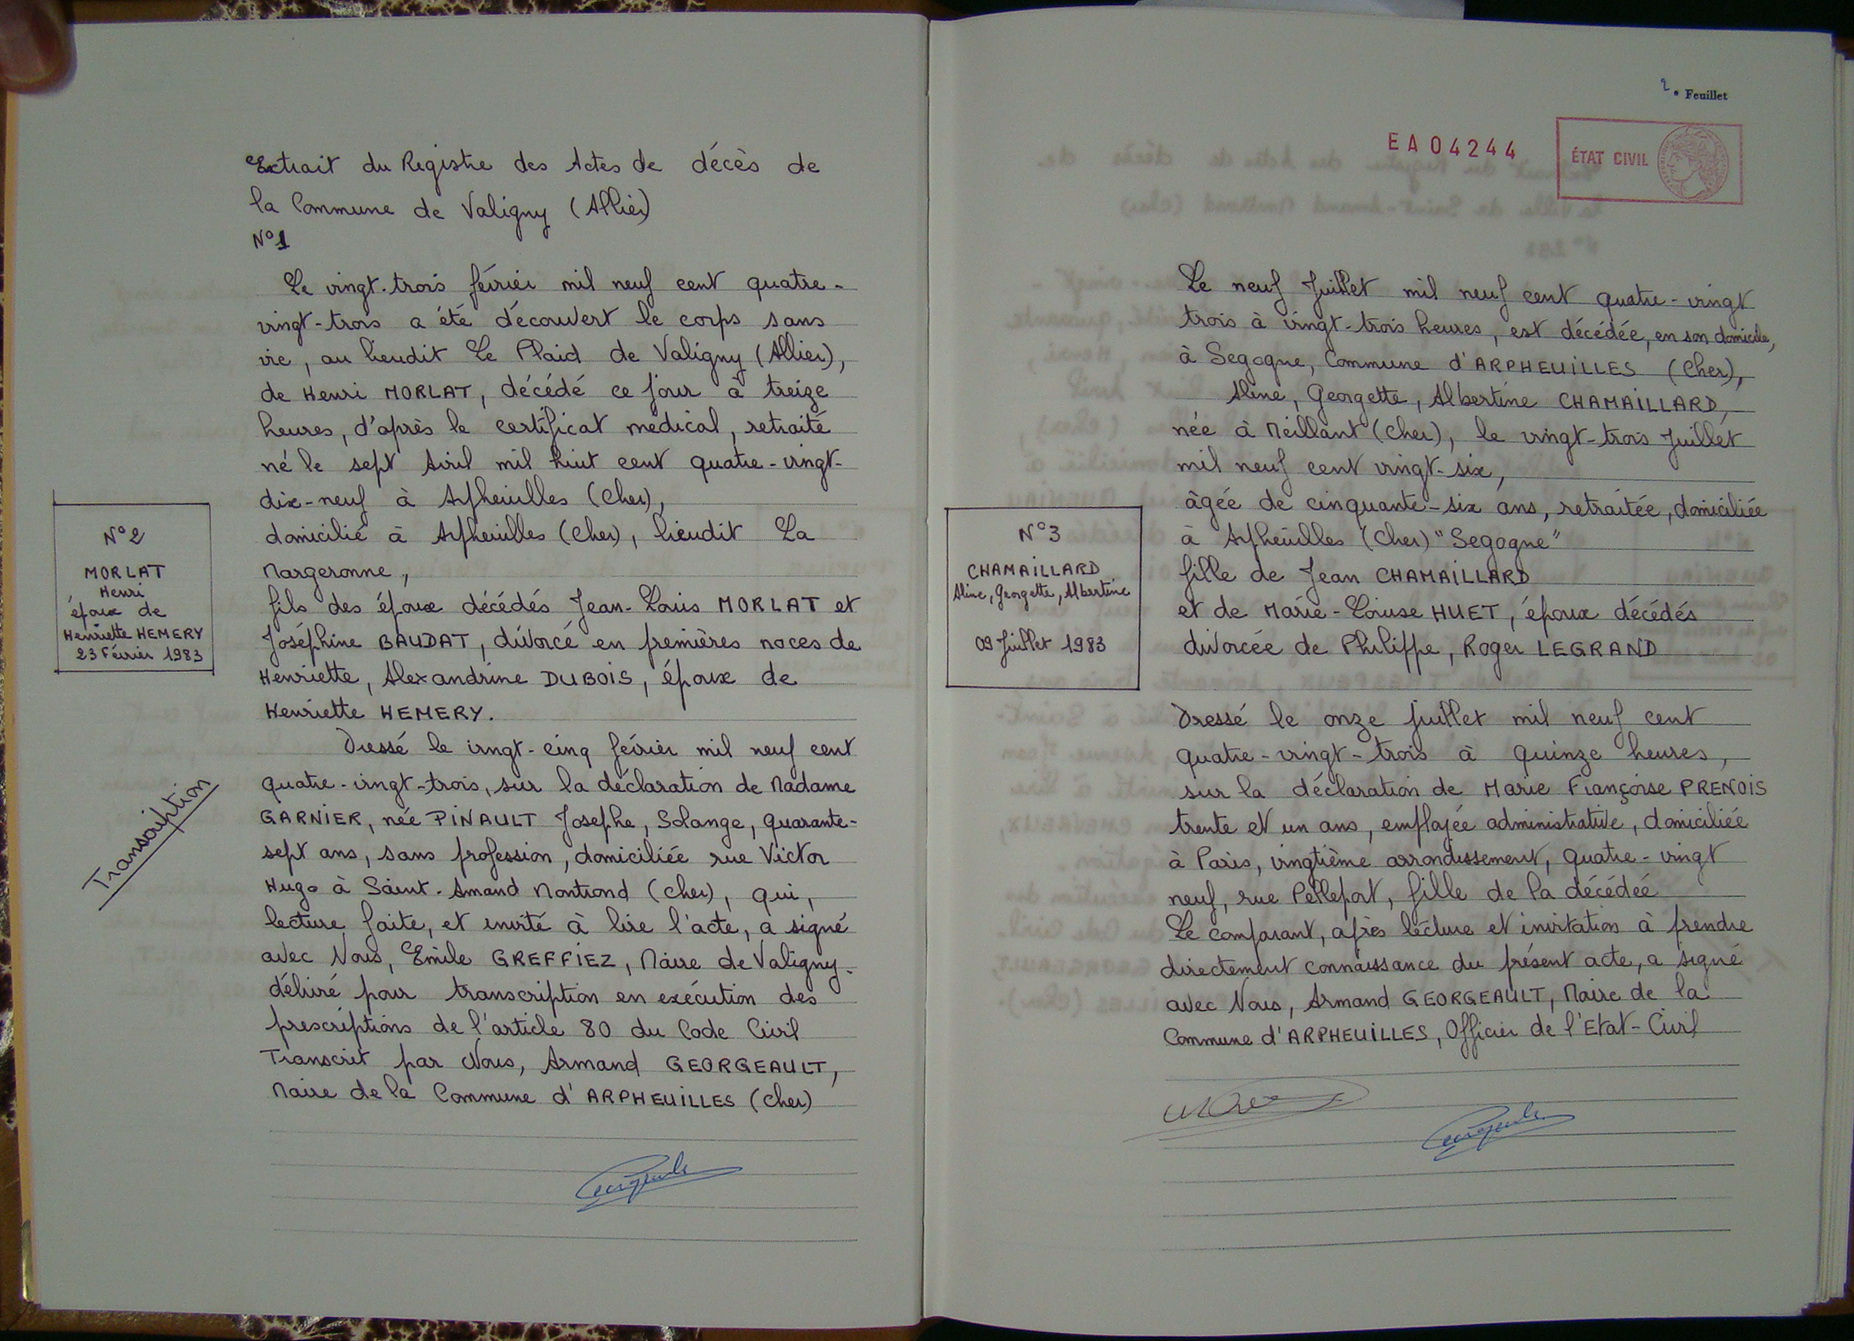 Extrait du Registre des Actes de décès de
la Commune de Valigny (Allier)
N°1
Le vingt-trois février mil neuf cent quatre-
vingt-trois a été découvert le corps sans
vie, au lieudit Le Plaid de Valigny (Allier),
de Henri MORLAT, décédé ce jour à treize
heures, d'après le certificat médical, retraité
né le sept Avril mil huit cent quatre-vingt-
dix-neuf à Arpheuilles (Cher),
domicilié à Arpheuilles (Cher), lieudit La
Margeronne,
fils des époux décédés Jean-Louis MORLAT et
Joséphine BAUDAT, divorcé en premières noces de
Henriette, Alexandrine DUBOIS, époux de
Henriette HEMERY.
Dressé le vingt-cinq février mil neuf cent
quatre-vingt-trois, sur la déclaration de Madame
GARNIER, née PINAULT Josephe, Solange, quarante-
sept ans, sans profession, domiciliée rue Victor
Hugo à Saint-Amand Montrond (Cher), qui,
lecture faite, et invité à lire l'acte, a signé
avec Nous, Emile GREFFIEZ, Maire de Valigny.
délivré pour transcription en exécution des
prescriptions de l'article 80 du Code Civil
Transcrit par Nous, Armand GEORGEAULT,
Maire de la Commune d'ARPHEUILLES (Cher)
N°2
MORLAT
Henri
époux de
Henriette HEMERY
23 Février 1983
Transcription
2e Feuillet
EA04244
ÉTAT CIVIL
Le neuf Juillet mil neuf cent quatre-vingt
trois à vingt-trois heures, est décédée, en son domicile,
à Segogne, Commune d'ARPHEUILLES (Cher),
Aline, Georgette, Albertine CHAMAILLARD,
née à Meillant (Cher), le vingt-trois Juillet
mil neuf cent vingt-six,
âgée de cinquante-six ans, retraitée, domiciliée
à Arpheuilles (Cher) "Segogne"
fille de Jean CHAMAILLARD
et de Marie-Louise HUET, époux décédés
divorcée de Philippe, Roger LEGRAND
Dressé le onze juillet mil neuf cent
quatre-vingt-trois à quinze heures,
sur la déclaration de Marie Françoise PRENOIS
trente et un ans, employée administrative, domiciliée
à Paris, vingtième arrondissement, quatre-vingt
neuf, rue Pelleport, fille de la décédée
Le comparant, après lecture et invitation à prendre
directement connaissance du présent acte, a signé
avec Nous, Armand GEORGEAULT, Maire de la
Commune d'ARPHEUILLES, Officier de l'Etat-Civil
N°3
CHAMAILLARD
Aline, Georgette, Albertine
09 Juillet 1983